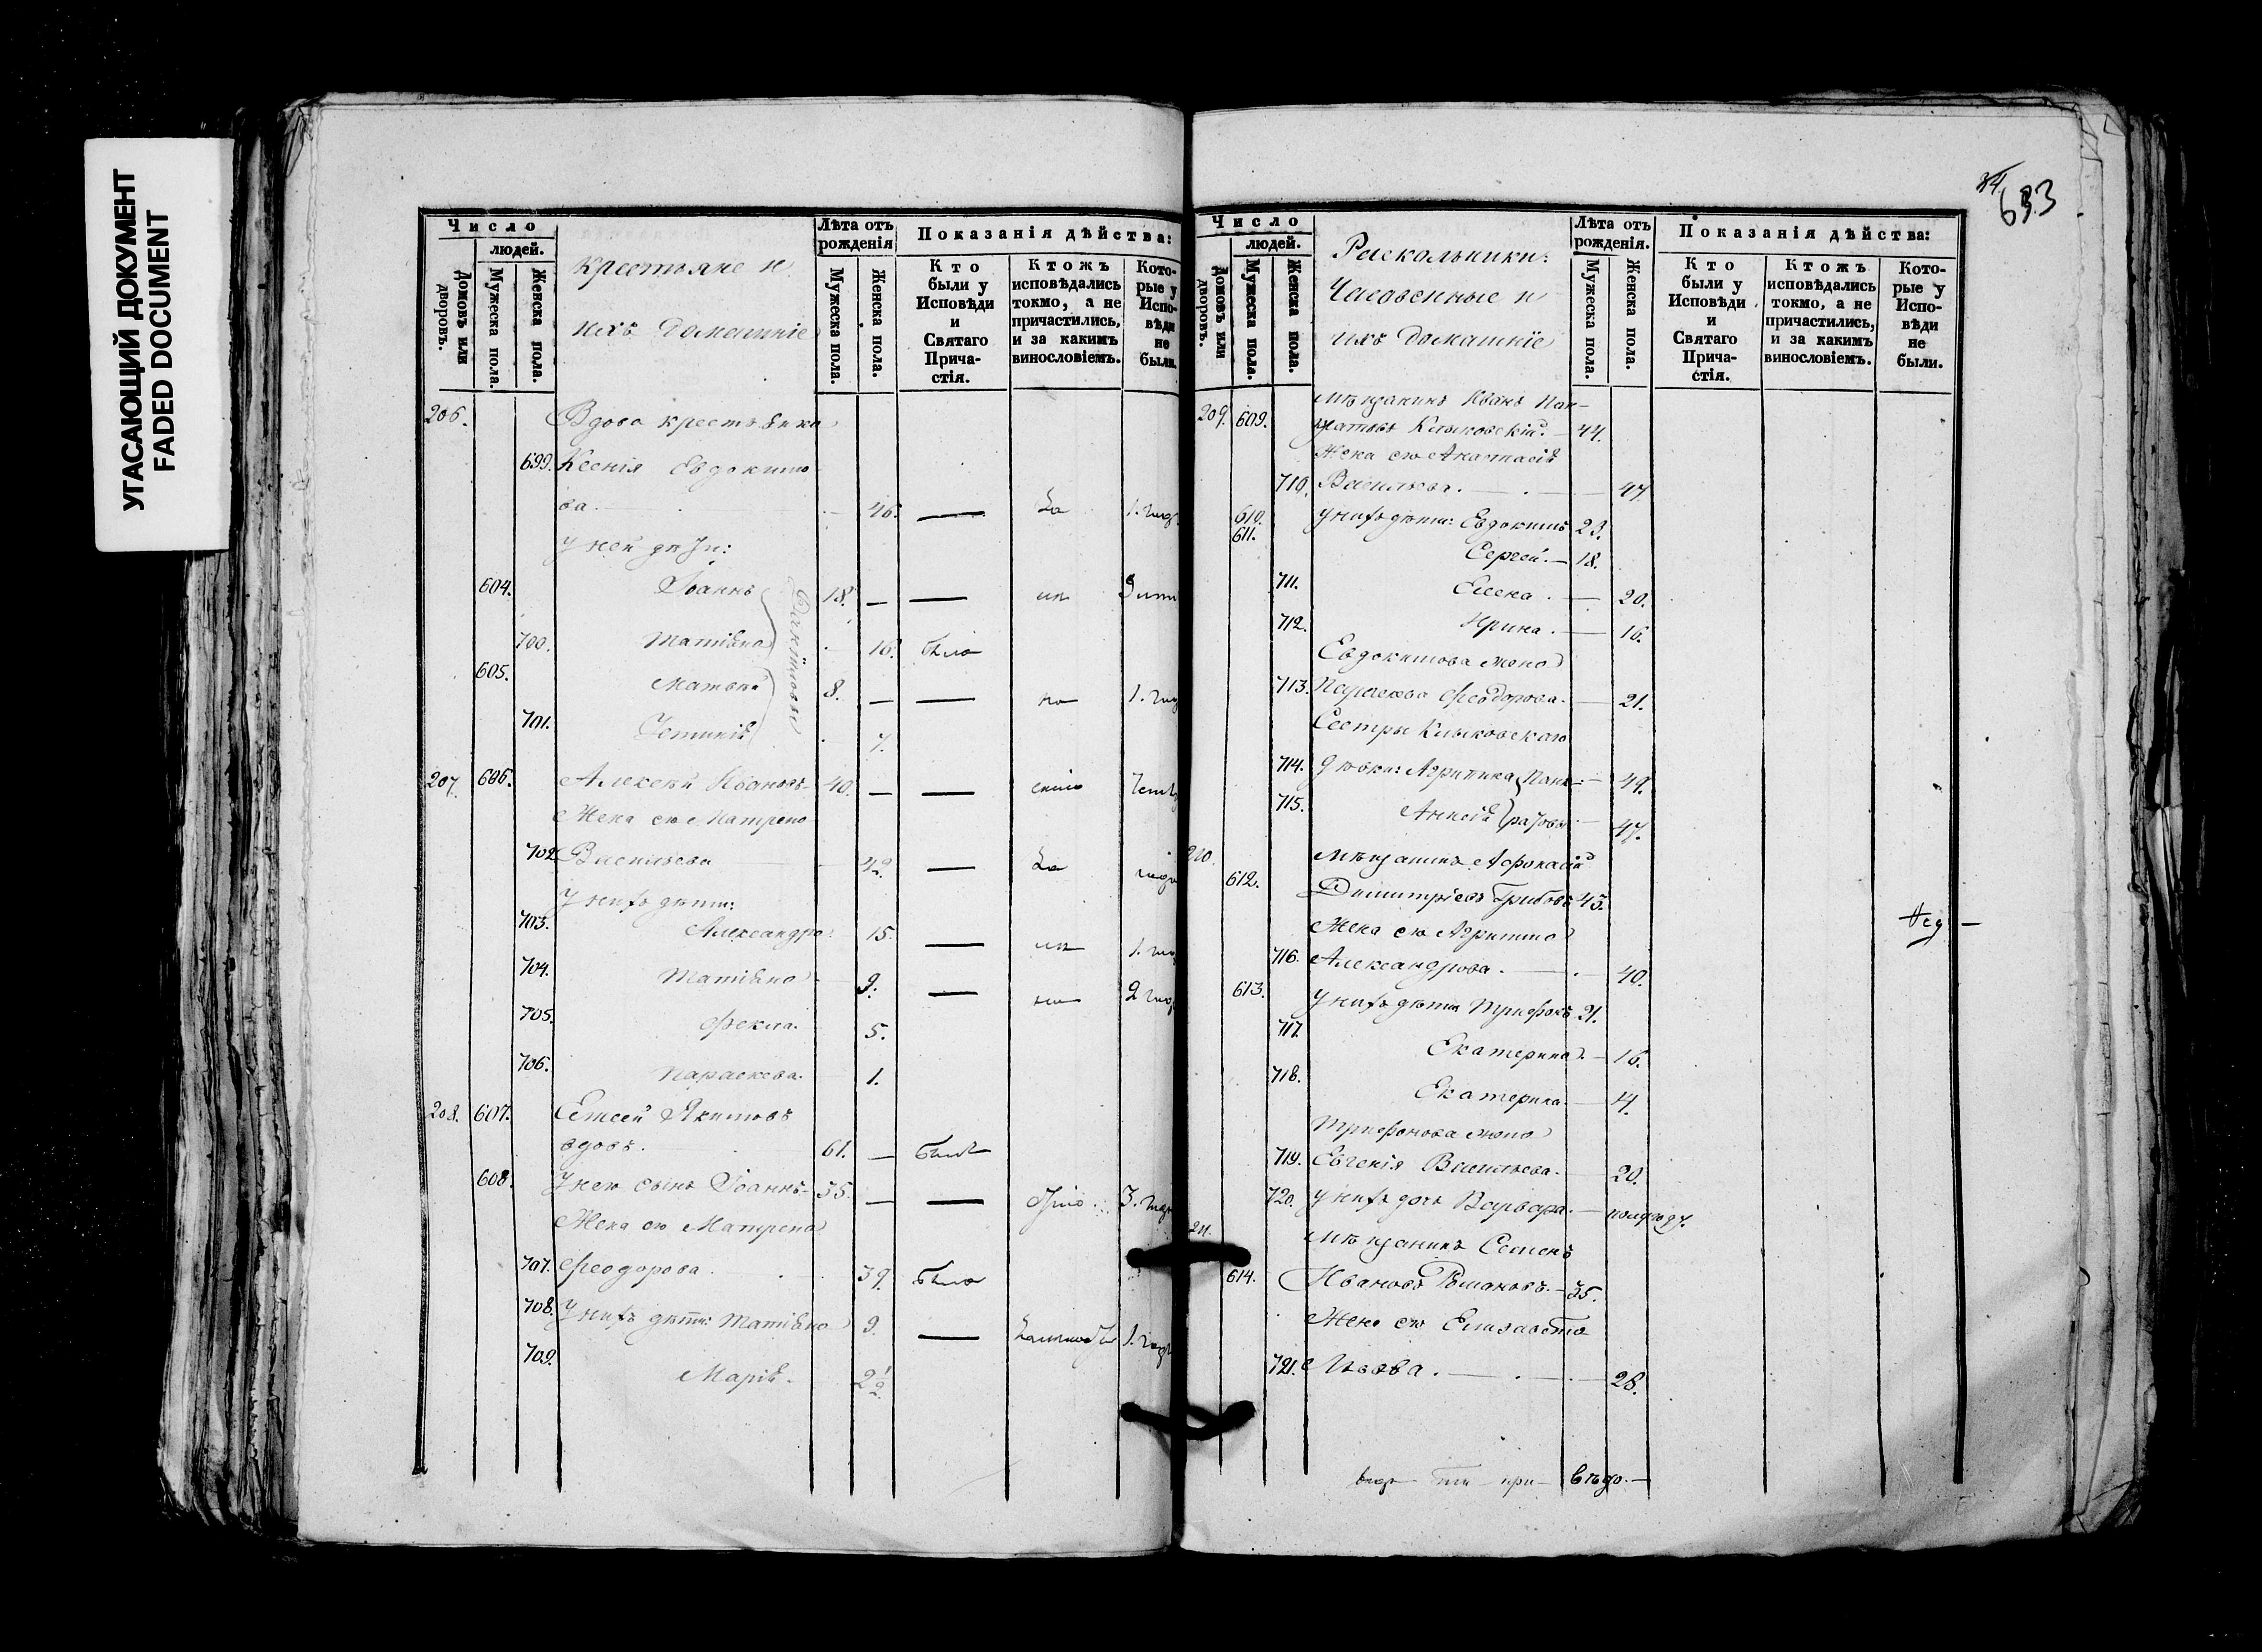 УГАСАЮЩИЙ ДОКУМЕНТ
FADED DOCUMENT
633
Число
людей.
Домовъ или дворовъ.
Мужеска пола.
Женска пола.
крестьяне и
ихъ домашніе
Лѣта отъ рожденія
Мужеска пола.
Женска пола.
Показанія дѣйства:
Кто были у Исповѣди и Святаго Причастія.
Ктожъ исповѣдались токмо, а не причастились, и за какимъ винословіемъ.
Которые у Исповѣди не были.
206. Вдова крестьянка
699. Ксенія Евдокимо
ва. 46. — 1. годъ
У ней дѣти:
604. Іоаннъ 18. — —
700. Татіяна 16. была
605. Матѳей 8. — — 1.
701. 7.
207. 606. Алексѣй Ивановъ 40. — —
Жена его Матрена
702. Васильева 42. —
У нихъ дѣти:
703. Александра 15. — 1.
704. Татіяна 9. — 2
705. Ѳекла. 5.
706. Параскева. 1.
208. 607. Елисей Якимовъ
вдовъ. 61. — былъ
608. У него сынъ Іоаннъ 35. — — 3.
Жена его Матрена
707. Ѳеодорова. 39. была
708. У нихъ дѣти: Татіяна 9. — 1. годъ
709. Марія. 2 1/2
Число
людей.
Домовъ или дворовъ.
Мужеска пола.
Женска пола.
Раскольники:
Часовенные и
ихъ домашніе
Лѣта отъ рожденія.
Мужеска пола.
Женска пола.
Показанія дѣйства:
Кто были у Исповѣди и Святаго Причастія.
Ктожъ исповѣдались токмо, а не причастились, и за какимъ винословіемъ.
Которые у Исповѣди не были.
209. 609. Мѣщанинъ Иванъ Пан-
кратовъ Клыковскій. 44.
Жена его Анастасія
710. Васильева. 47
610. У нихъ дѣти: Евдокимъ 23.
611. Сергей. — 18.
711. Елена. 20.
712. Ирина. 16.
Евдокимова жена
713. Параскева Ѳеодорова. 21.
Сестры Клыковскаго
714. дѣвки: Агрипина Панк- 49.
715. Анисія ратовы 47.
210. Мѣщанинъ Аѳонасій
612. Димитріевъ Грибовъ 43.
Жена его Агрипина
716. Александрова. 40.
613. У нихъ дѣти Трифонъ 21.
717. Екатерина. — 16.
718. Екатерина. 4.
Трифонова жена
719. Евгенія Васильева. 20.
720. У нихъ дочь Варвара. — полгоду.
211. Мѣщанинъ Семенъ
614. Ивановъ Романовъ. 35.
Жена его Елизавета
721. 28.